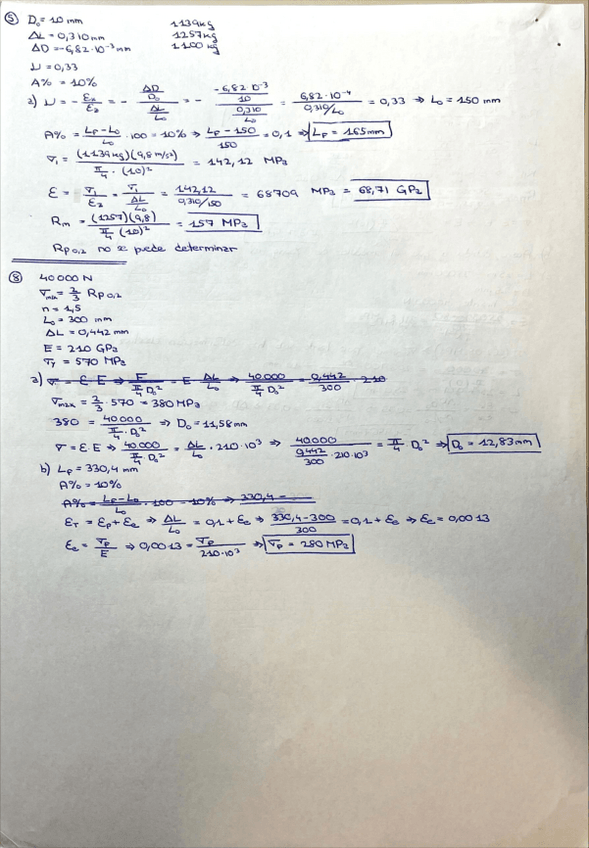 ⑤ D₀ = 10 mm 1139 kg
ΔL = 0,310 mm 1257 kg
ΔD = -6,82·10⁻³ mm 1100 kg
ν = 0,33
A% = 10%
a) ν = - εx/εz = - (ΔD/D₀)/(ΔL/L₀) = - (-6,82·10⁻³/10)/(0,310/L₀) = 6,82·10⁻⁴/(0,310/L₀) = 0,33 ⇒ L₀ = 150 mm
A% = (LF-L₀)/L₀ · 100 = 10% ⇒ (LF-150)/150 = 0,1 ⇒ LF = 165 mm
σ₁ = (1139 kg)(9,8 m/s²)/(π/4 · (10)²) = 142,12 MPa
E = σ₁/εz = σ₁/(ΔL/L₀) = 142,12/(0,310/150) = 68709 MPa = 68,71 GPa
Rm = (1257)(9,8)/(π/4 (10)²) = 157 MPa
Rp0,2 no se puede determinar
⑧ 40000 N
σmáx = 2/3 Rp0,2
n = 1,5
L₀ = 300 mm
ΔL = 0,442 mm
E = 210 GPa
σy = 570 MPa
a) σ = E·E ⇒ F/(π/4 D₀²) = E · ΔL/L₀ ⇒ 40.000/(π/4 D₀²) = 0,442/300 · 210
σmáx = 2/3 · 570 = 380 MPa
380 = 40000/(π/4 · D₀²) ⇒ D₀ = 11,58 mm
σ = E·E ⇒ 40000/(π/4 D₀²) = ΔL/L₀ · 210·10³ ⇒ 40000/(0,442/300 · 210·10³) = π/4 · D₀² ⇒ D₀ = 12,83 mm
b) LF = 330,4 mm
A% = 10%
A% = (LF-L₀)/L₀ · 100 = 10% ⇒ 330,4 -
εT = εp + εe ⇒ ΔL/L₀ = 0,1 + εe ⇒ (330,4-300)/300 = 0,1 + εe ⇒ εe = 0,0013
εe = σF/E ⇒ 0,0013 = σF/(210·10³) ⇒ σF = 280 MPa